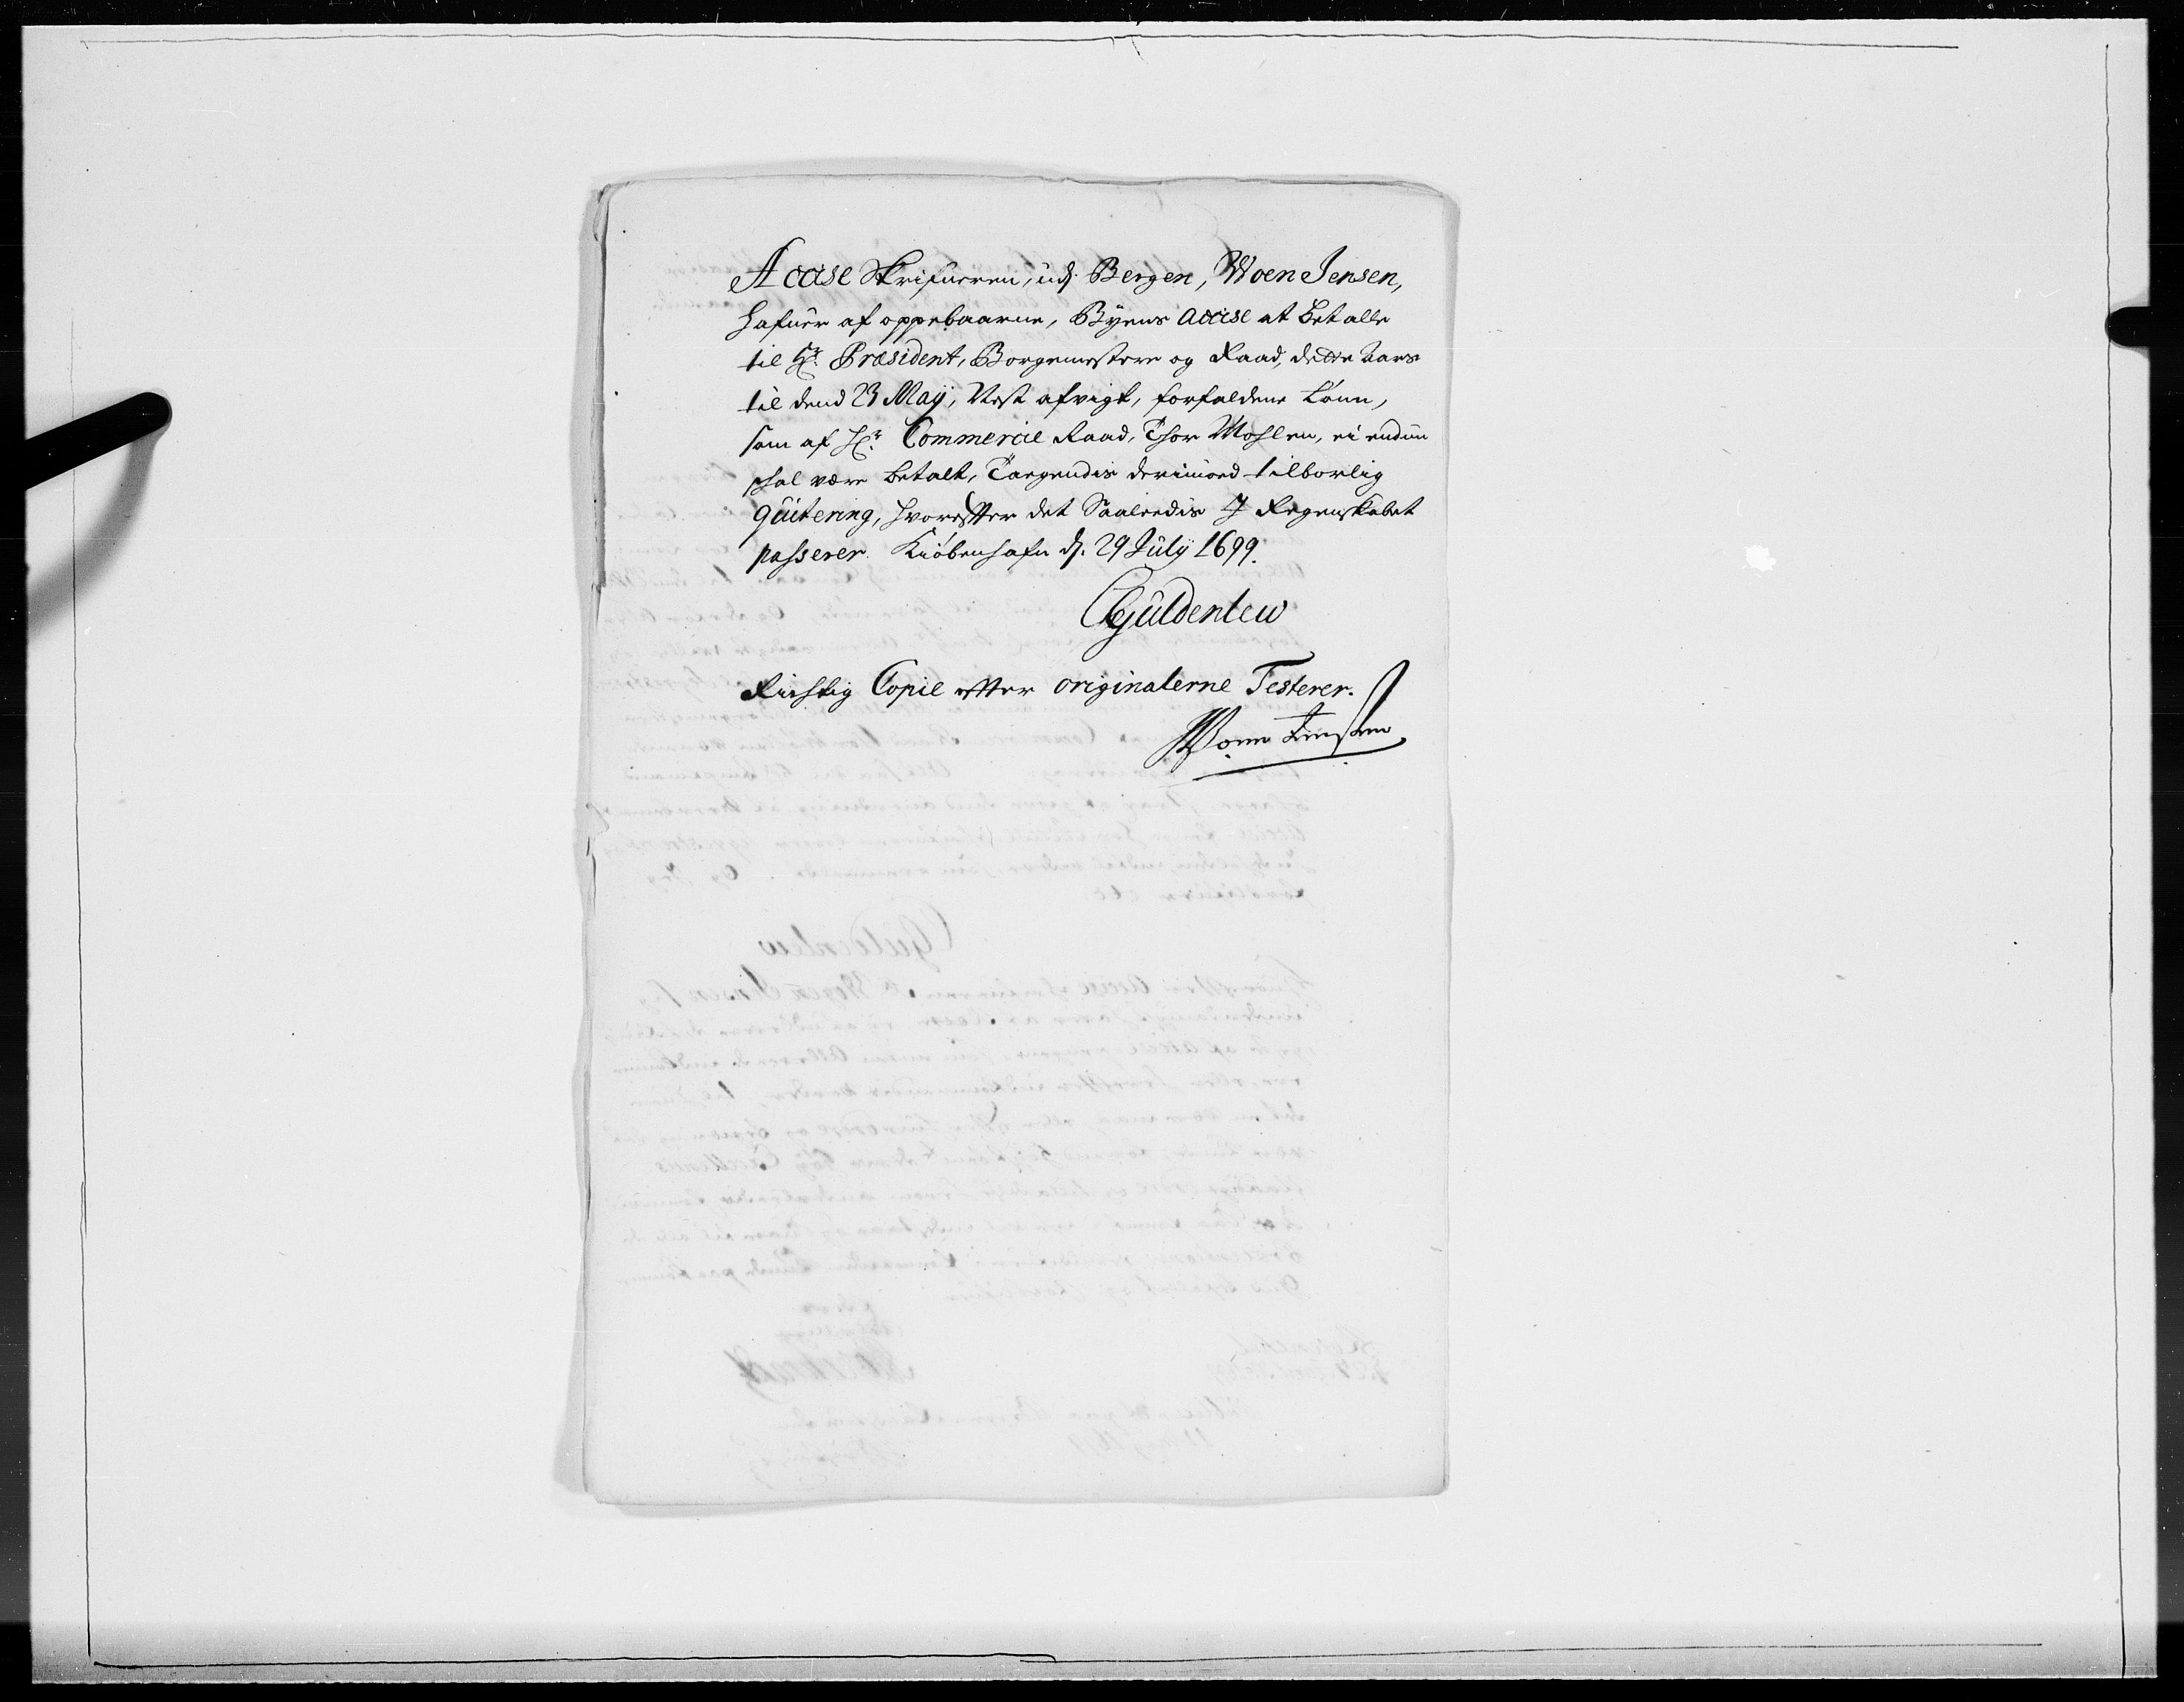 Accise Skrifueren, udj Bergen, Woen Jensen,
hafuer af oppebaarne, Byens accise at betalle
til Hr: Præsident, Borgemestere og Raad, dette Aars
til dend 23 Maÿ, Nest afvigt, forfaldene Lönn,
som af Hr: Commercie Raad, Thor Mohlen, ei endnu
schal være betalt, Tagendis derimoed tilborlig
quitering, hvorefter det Saaleedis J Regenskabet
passerer. Kiöbenhafn d. 29 Julÿ 1699.
CGuldenlew
Richtig Copie efter originalerne Testerer.
Woen Jensen